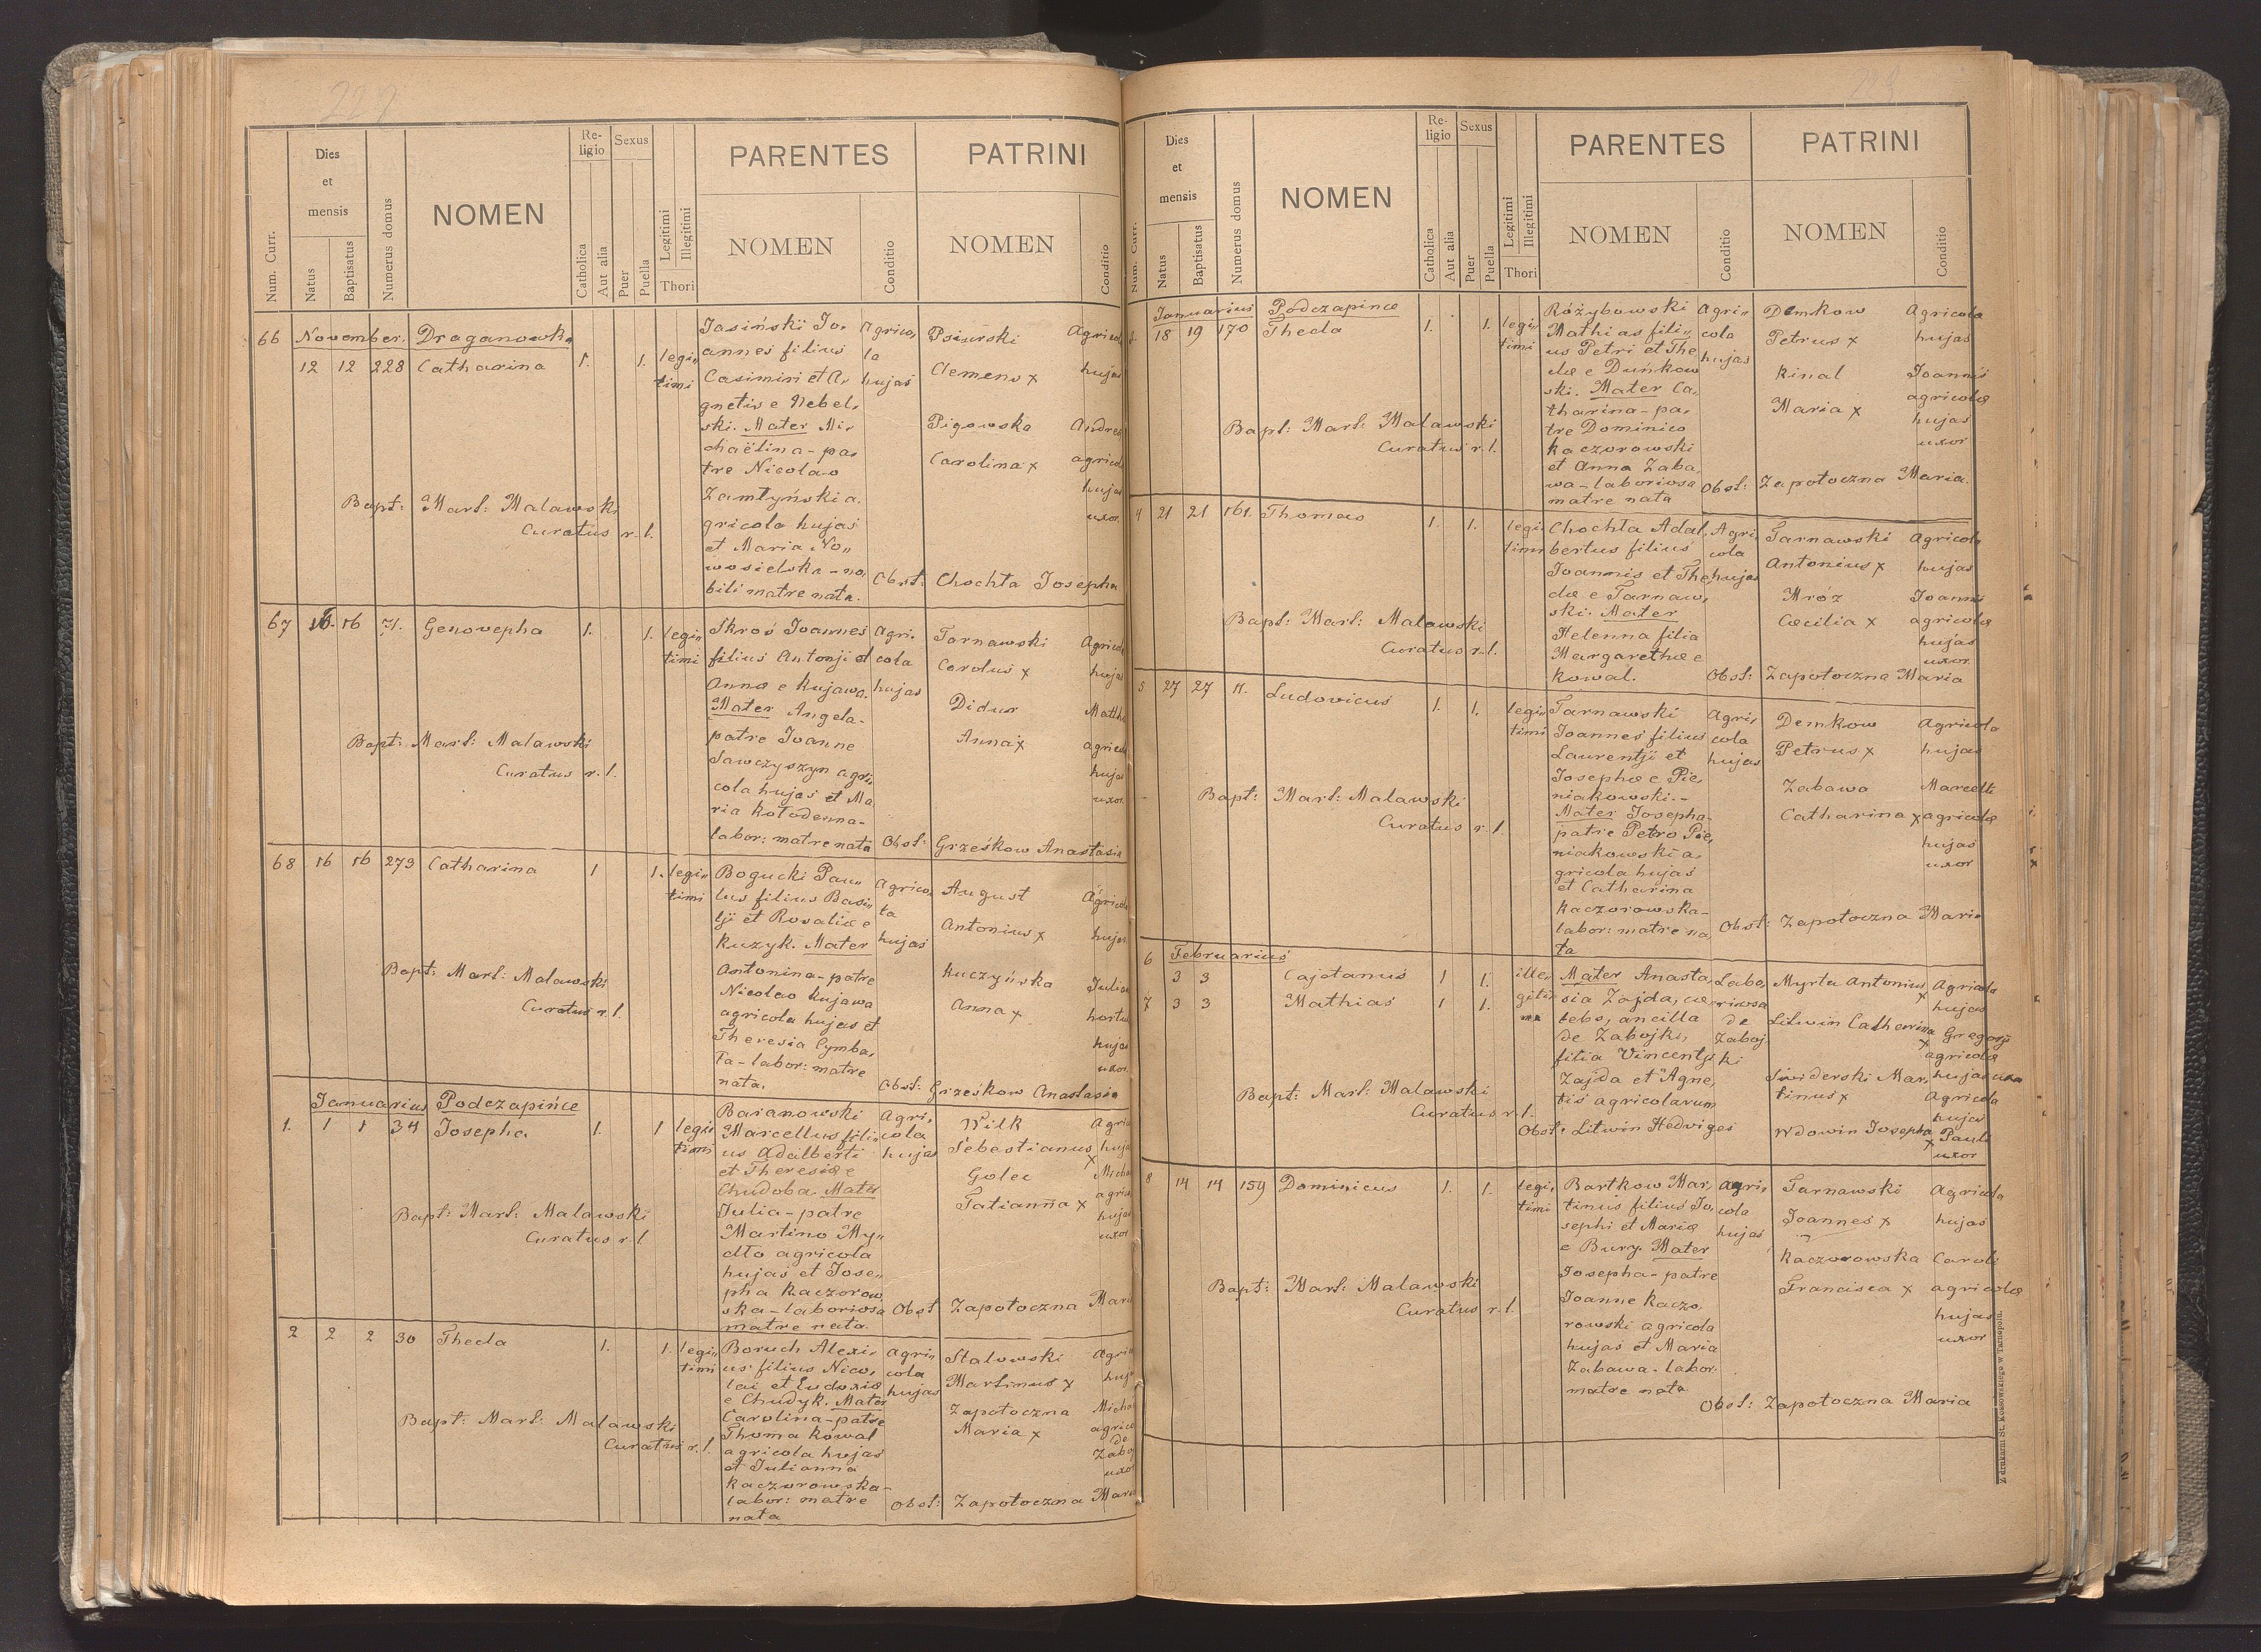 Num. Curr.
Dies et mensis
Natus
Baptisatus
Numerus domus
NOMEN
Re-
ligio
Catholica
Aut alia
Sexus
Puer
Puella
Legitimi
Illegitimi
Thori
PARENTES
NOMEN
Conditio
PATRINI
NOMEN
Conditio
66 November. Draganowka
12 12 228 Catharina 1. 1. legi„
timi
Jasiński Jo„
annes filius
Casimiri et A„
gnetis e Nebel„
ski. Mater Mi„
chaëlina - pa„
tre Nicolao
Zamłyński a„
gricola hujas
et Maria No„
wosielska - no„
bili matre nata.
Agrico„
la
hujas
Psiurski
Clemens x
Pigowska
Carolina x
Agricol
hujas
Andrea
agricol
hujas
uxor.
Bapt: Mart: Malawski
Curatus r. l.
Obst: Chochła Josepha
67 16. 16 71. Genovepha 1. 1. legi„
timi
Skroś Joannes
filius Antonji et
Annæ e Kujawa.
Mater Angela -
patre Joanne
Sawczyszyn agri„
cola hujas et Ma„
ria Kołodenna -
labor: matre nata
Agri„
cola
hujas
Tarnawski
Carolus x
Didur
Anna x
Agricol
hujas
Matth
agricol
hujas
uxor.
Bapt: Mart: Malawski
Curatus r. l.
Obst: Grześkow Anastasia
68 16 16 273 Catharina 1 1. legi„
timi
Bogucki Pau„
lus filius Basi„
lji et Rosaliæ e
Kuzyk. Mater
Antonina - patre
Nicolao Kujawa
agricola hujas et
Theresia Cymba„
ła - labor: matre
nata.
Agrico„
la
hujas
August
Antonius x
Kuczyńska
Anna x
Agricol
hujas
Julia
hortu
hujas
uxor
Bapt: Mart: Malawski
Curatus r. l.
Obst: Grześkow Anastasia
Januarius Podczapińce
1. 1 1 34 Josepha 1. 1 legi„
timi
Baranowski
Marcellus fili„
us Adalberti
et Theresiæ e
Chudoba. Mater
Julia - patre
Martino My„
dło agricola
hujas et Jose„
pha Kaczorow„
ska - laboriosa
matre nata.
Agri„
cola
hujas
Wilk
Sebastianus x
Golec
Tatianna x
Agri
huja
Micha
agric
hujas
uxor
Bapt: Mart: Malawski
Curatus r. l.
Obst Zapotoczna Mari
2 2 2 30 Thecla 1. 1. legi„
timi
Boruch Alexi„
us filius Nico„
lai et Eudoxiæ
e Chudyk. Mater
Carolina - patre
Thoma Kowal
agricola hujas
et Julianna
Kaczorowska -
labor: matre
nata
Agri„
cola
hujas
Stalowski
Martinus x
Zapotoczna
Maria x
Agri
huj
Micha
agrico
de
Zaboj
uxor
Bapt: Mart: Malawski
Curatus r. l.
Obst: Zapotoczna Mari
Num. Curr.
Dies
et
mensis
Natus
Baptisatus
Numerus domus
NOMEN
Re-
ligio
Catholica
Aut alia
Sexus
Puer
Puella
Legitimi
Illegitimi
Thori
PARENTES
NOMEN
Conditio
PATRINI
NOMEN
Conditio
Januarius Podczapince
3. 18 19 170 Thecla 1. 1. legi„
timi
Różybowski
Mathias fili„
us Petri et The„
clæ e Dunkow„
ski. Mater Ca„
tharina - pa„
tre Dominico
Kaczorowski
et Anna Zaba„
wa - laboriosa
matre nata
Agri„
cola
hujas
Demkow
Petrus x
Kinal
Maria x
Agricola
hujas
Joannis
agricolæ
hujas
uxor
Bapt: Mart: Malawski
Curatus r. l.
Obst: Zapotoczna Maria.
4 21 21 161. Thomas 1. 1. legi„
timi
Chochła Adal„
bertus filius
Joannis et The„
clæ e Tarnaw„
ski. Mater
Helenna filia
Margarethæ e
Kowal.
Agri„
cola
hujas
Tarnawski
Antonius x
Mróz
Cæcilia x
Agricola
hujas
Joannis
agricolæ
hujas
uxor.
Bapt: Mart: Malawski
Curatus r. l.
Obst: Zapotoczna Maria
5 27 27 11. Ludovicus 1. 1. legi„
timi
Tarnawski
Joannes filius
Laurentji et
Josephæ e Pie„
niakowski. -
Mater Josepha -
patre Petro Pie„
niakowski a„
gricola hujas
et Catharina
Kaczorowska -
labor: matre na„
ta
Agri„
cola
hujas
Demkow
Petrus x
Zabawa
Catharina x
Agricola
hujas
Marcelli
agricolæ
hujas
uxor
Bapt: Mart: Malawski
Curatus r. l.
Obst: Zapotoczna Maria
Februarius
6 3 3 Cajetanus 1 1. ille„
7 3 3 Mathias 1 1. giti„
mi
Mater Anasta„
sia Zajda, cæ„
lebs, ancilla
de Zabojki,
filia Vincentji
Zajda et Agne„
tis agricolarum
Labo„
riosa
de
Zaboj„
ki
Myrta Antonius x
Litwin Catharina x
Świderski Mar„
tinus x
Wdowin Josepha x
Agricola
hujas
Gregorji
agricolæ
hujas uxor
Agricola
hujas
Pauli
uxor
Bapt: Mart: Malawski
Curatus r. l.
Obst: Litwin Hedviges
8 14 14 154 Dominicus 1. 1. legi„
timi
Bartkow Mar„
tinus filius Jo„
sephi et Mariæ
e Bury. Mater
Josepha - patre
Joanne Kaczo„
rowski agricola
hujas et Maria
Zabawa - labor:
matre nata
Agri„
cola
hujas
Tarnawski
Joannes x
Kaczorowska
Francisca x
Agricola
hujas
Caroli
agricolæ
hujas
uxor
Bapt: Mart: Malawski
Curatus r. l.
Obst: Zapotoczna Maria
Z drukarni St. Kossowskiego w Tarnopolu